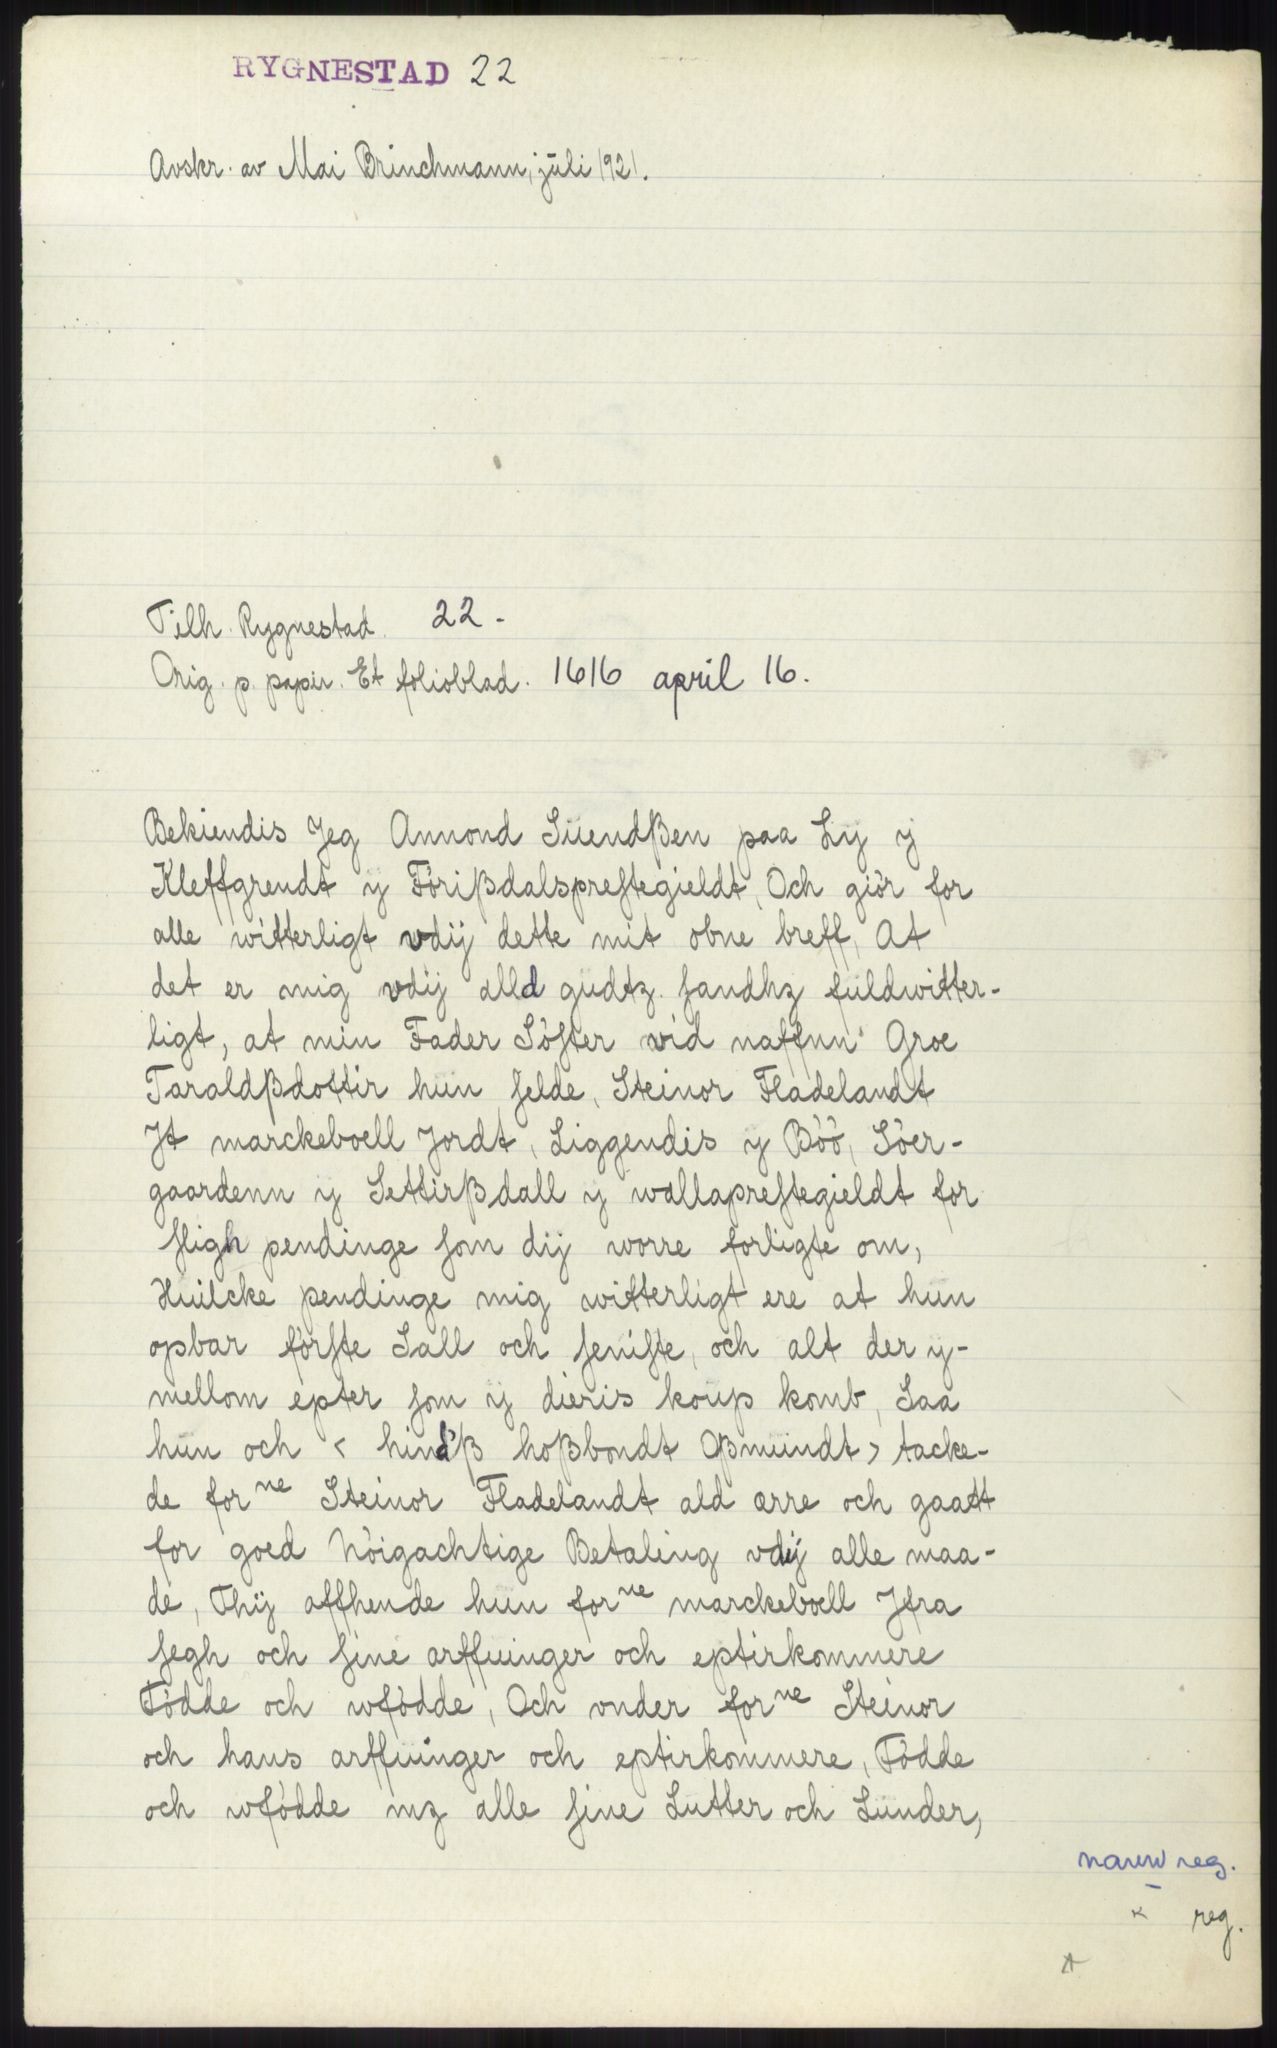 RYGNESTAD 22
Avskr. av Mai Brinchmann, juli 1921.
Tilh. Rygnestad. 22.
Orig. p. papir. Et folioblad. 1616 april 16.
Bekiendis Jeg Annond Suendßen paa Ly y
Kleffgrendt y Förißdalsprestegieldt, Och giör for
alle witterligt vdij dette mit obne breff, At
det er mig vdij alld gudtz sandhz fuldwitter-
ligt, at min Fader Söster vid naffnn Groe
Taraldßdottir hun selde, Steinor Fladelandt
Jt marckeboell Jordt, Liggendis y Böö, Söer-
gaardenn y Settirßdall y wallaprestegieldt for
sligh pendinge som dij worre forligte om,
Huilcke pendinge mig witterligt ere at hun
opbar förste Sall och seniste, och alt der y-
mellom epter som ij dieris koup komb, Saa
hun och < hindß hoßbondt Oßmundt > tacke-
de forne Steinor Fladelandt ald ærre och gaatt
for goed Nöigachtige Betaling vdij alle maa-
de, Thij affhende hun forne marckeboell Jfra
segh och sine arffuinger och eptirkommere
Födde och wfödde, Och vnder forne Steinor
och hans arffuinger och eptirkommere, Födde
och wfödde mz alle sine Lutter och Lunder,
navne reg.
reg.